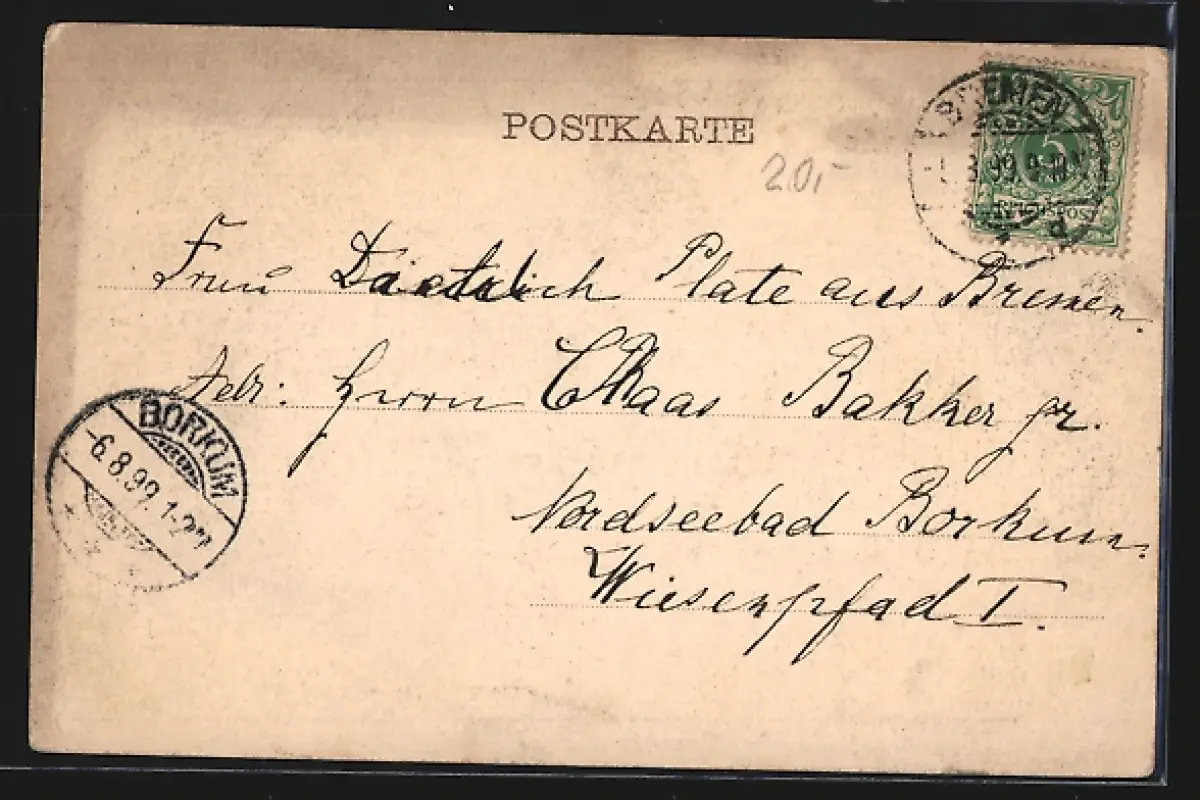 POSTKARTE
20,-
BREMEN
8.99. 9-10
5
REICHSPOST
Frau Dietrich Plate aus Bremen.
Adr: Herrn Claas Bakker gr.
Nordseebad Borkum.
Wiesenpfad I.
BORKUM
-6.8.99. 1-2N